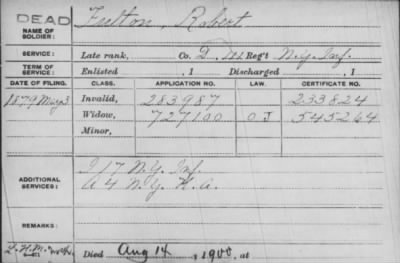 DEAD
NAME OF SOLDIER: Fulton, Robert.
SERVICE: Late rank, Co. D, Reg't N.Y. Inf.
TERM OF SERVICE: Enlisted , 1 Discharged , 1
DATE OF FILING. CLASS. APPLICATION NO. LAW. CERTIFICATE NO.
1879 May 3 Invalid, 283987 233824
Widow, 727100 O J 545264
Minor,
ADDITIONAL SERVICES: I 17 N.Y. Inf.
A 4 N.Y. H.A.
REMARKS:
Died Aug 14, 1900, at